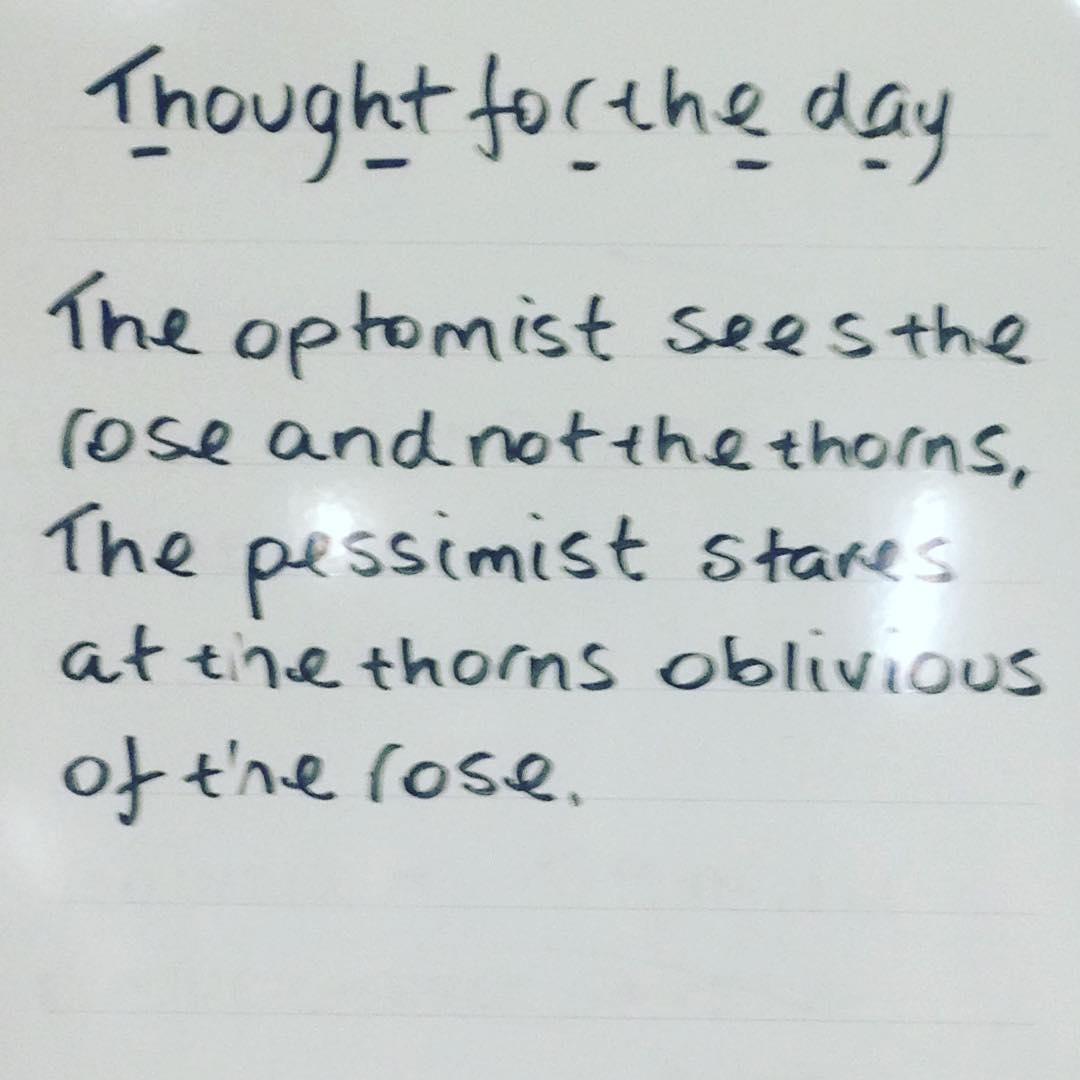 Thought for the day
The optomist sees the
rose and not the thorns,
The pessimist stares
at the thorns oblivious
of the rose.